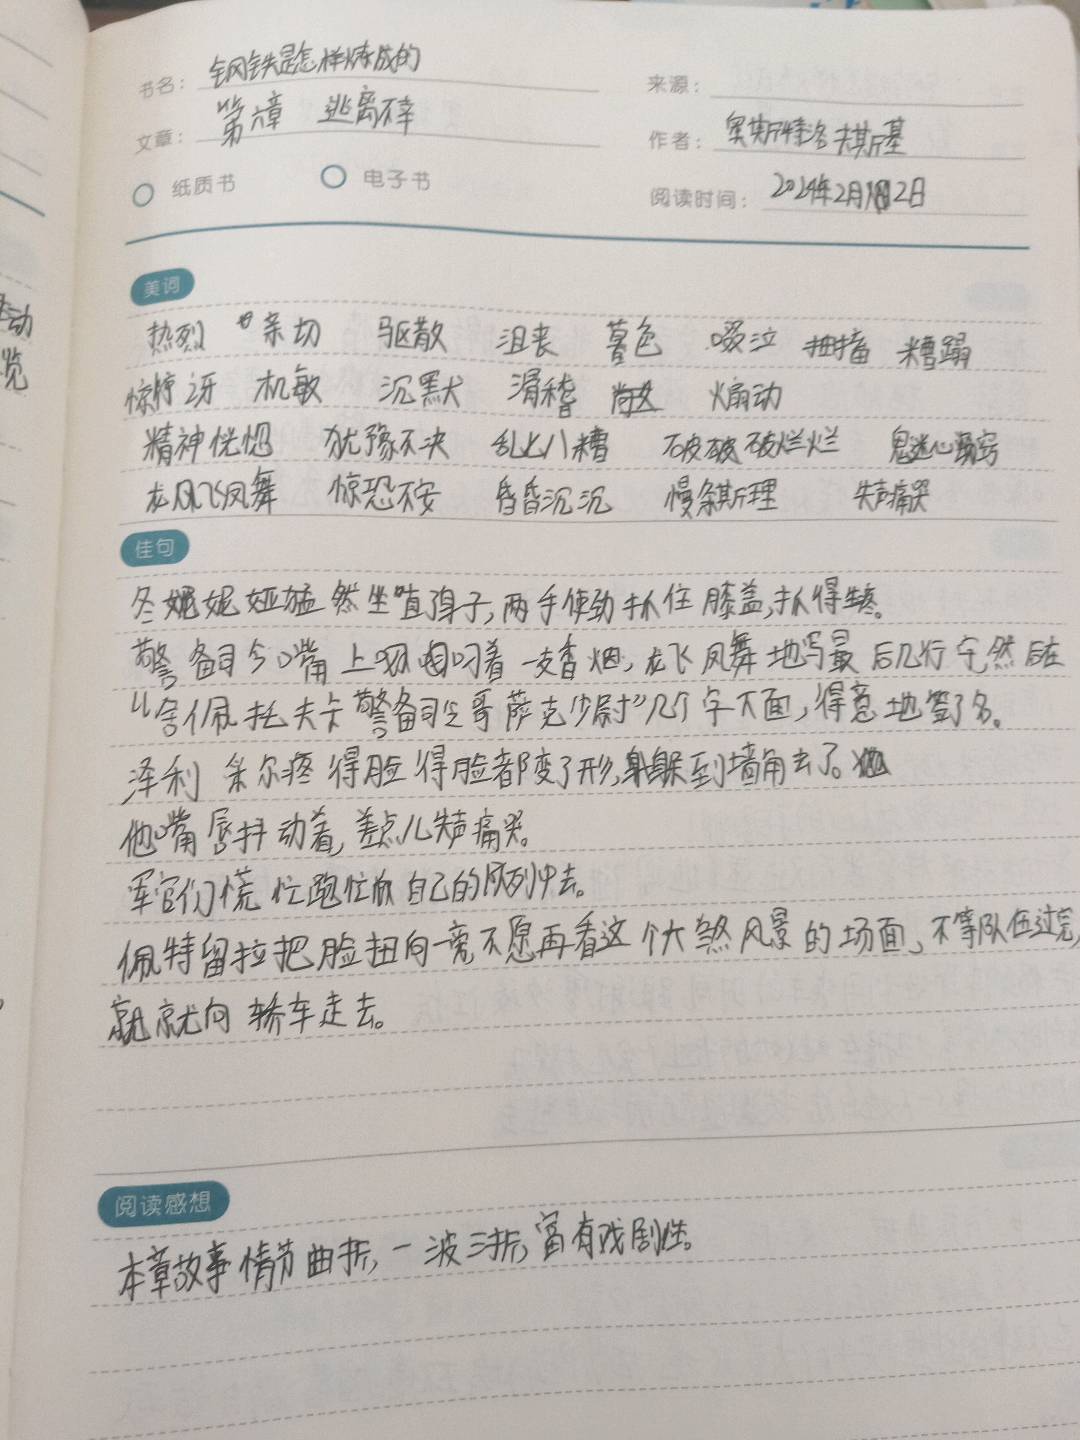 书名：钢铁是怎样炼成的
来源：
文章：第六章 逃离不幸
作者：奥斯特洛夫斯基
纸质书 电子书
阅读时间：2024年2月12日
美词
热烈 亲切 驱散 沮丧 暮色 啜泣 抽搐 糟蹋
惊讶 机敏 沉默 滑稽 煽动
精神恍惚 犹豫不决 乱七八糟 破破烂烂 鬼迷心窍
龙凤飞舞 惊恐不安 昏昏沉沉 慢条斯理 失声痛哭
佳句
冬妮娅猛然坐直身子，两手使劲抓住膝盖，抓得生疼。
警备司令嘴上叼着一支香烟，龙飞凤舞地写最后几行字，然后在
“舍佩托夫卡警备司令哥萨克少尉”几个字下面，得意地签了名。
泽利采尔疼得脸得脸都变了形，躲到墙角去了。
他嘴唇抖动着，差点儿失声痛哭。
军官们慌忙跑忙放自己的队列中去。
佩特留拉把脸扭向一旁不愿再看这个大煞风景的场面，不等队伍过完，
就向轿车走去。
阅读感想
本章故事情节曲折，一波三折，富有戏剧性。
动
览